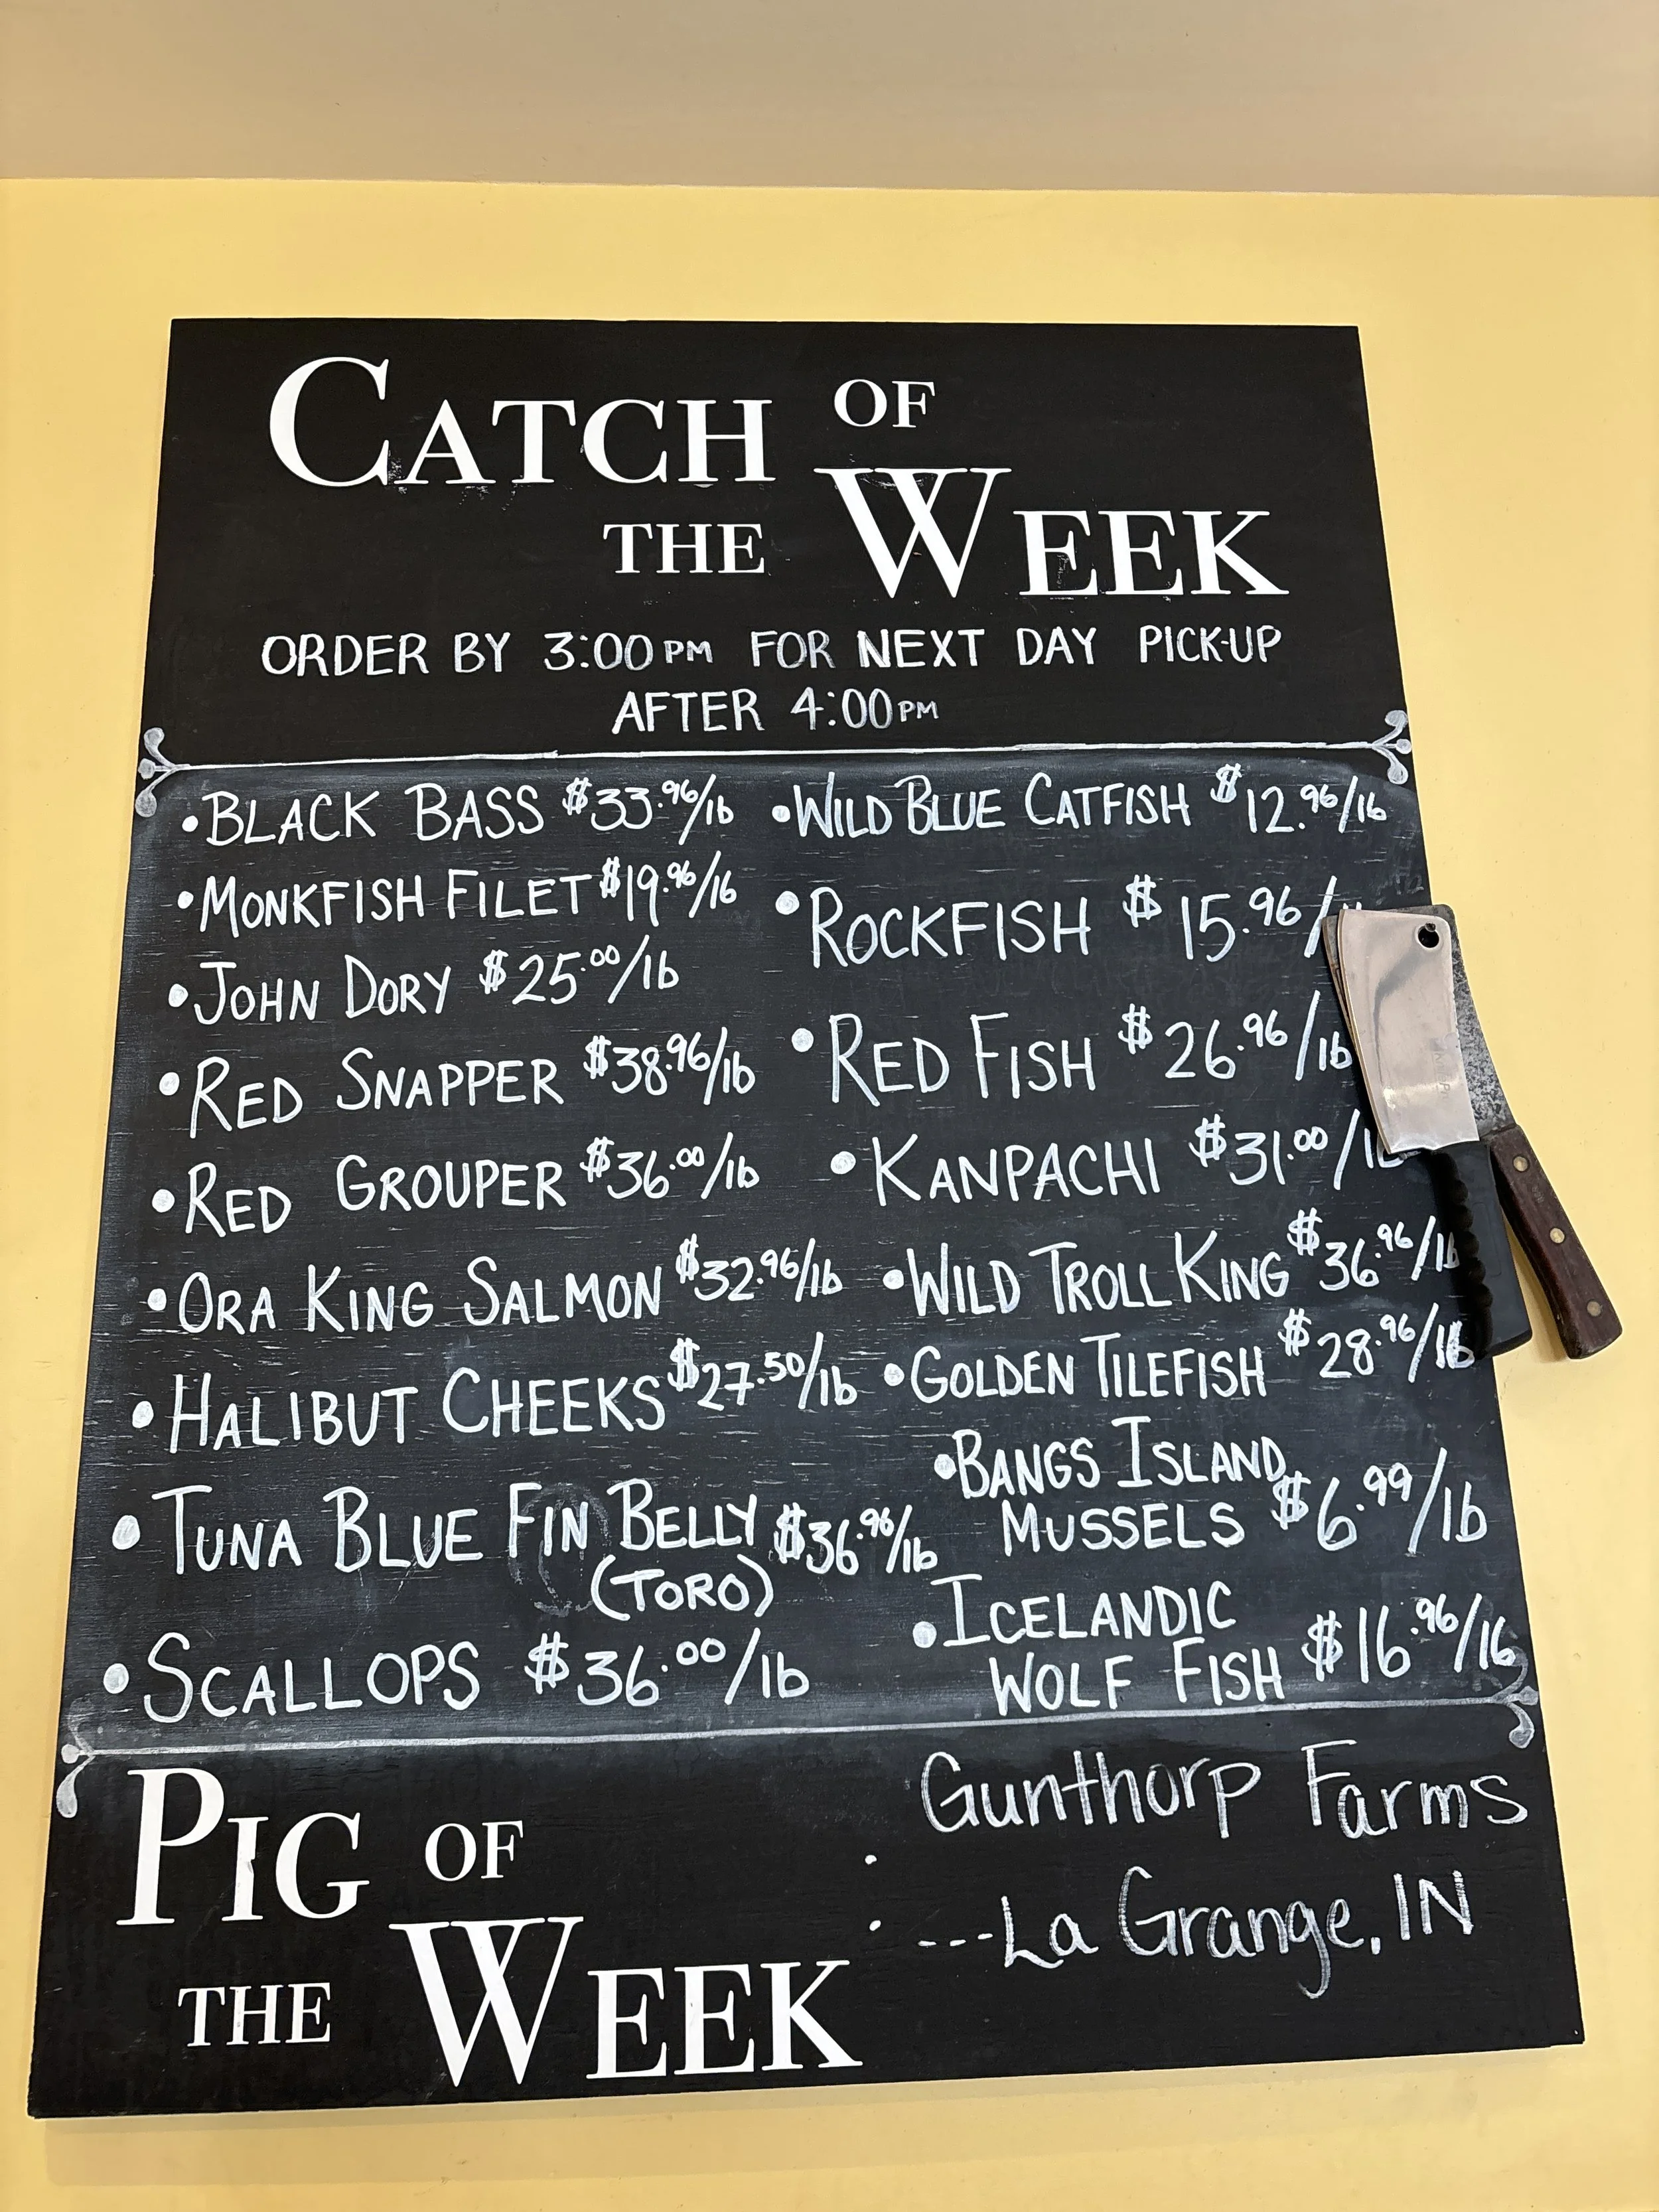 CATCH OF
THE WEEK
ORDER BY 3:00PM FOR NEXT DAY PICK-UP
AFTER 4:00PM
• BLACK BASS $33.96/lb
• MONKFISH FILET $19.96/lb
• JOHN DORY $25.00/lb
• RED SNAPPER $38.96/lb
• RED GROUPER $36.00/lb
• ORA KING SALMON $32.96/lb
• HALIBUT CHEEKS $27.50/lb
• TUNA BLUE FIN BELLY $36.96/lb
(TORO)
• SCALLOPS $36.00/lb
• WILD BLUE CATFISH $12.96/lb
• ROCKFISH $15.96/
• RED FISH $26.96/lb
• KANPACHI $31.00/lb
• WILD TROLL KING $36.96/lb
• GOLDEN TILEFISH $28.96/lb
• BANGS ISLAND
MUSSELS $6.99/lb
• ICELANDIC
WOLF FISH $16.96/lb
PIG OF
THE WEEK :
Gunthorp Farms
---La Grange, IN